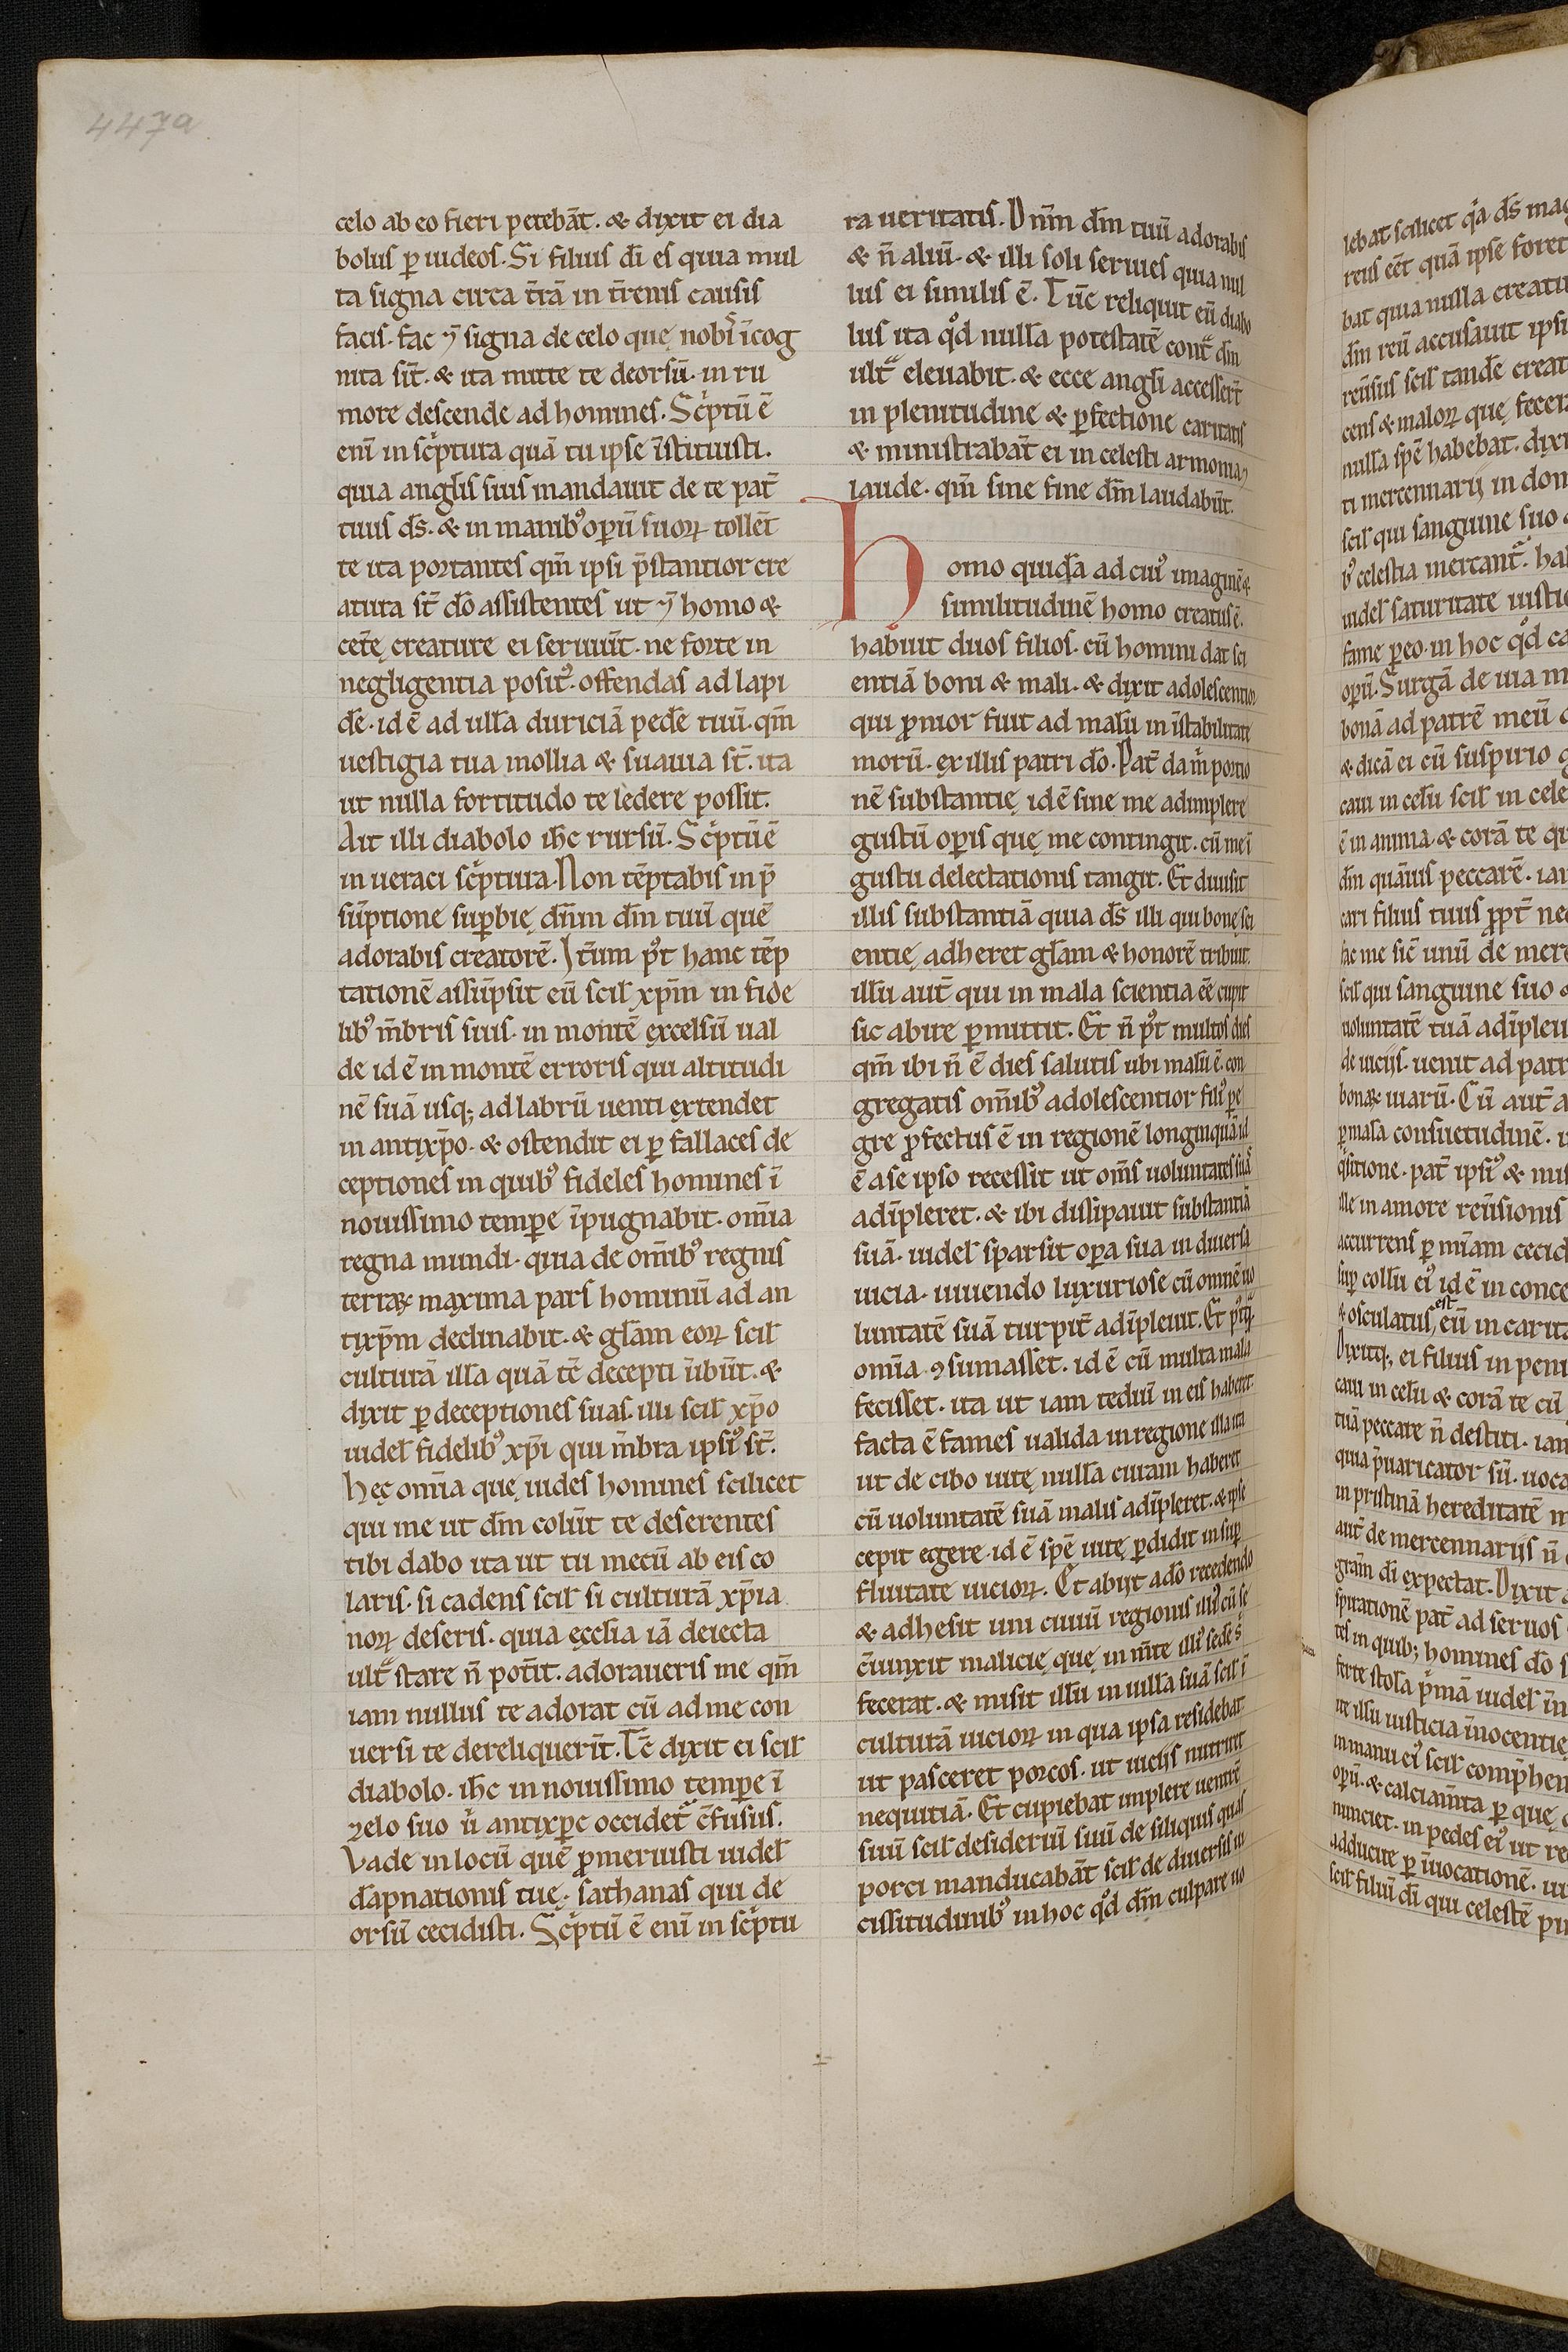 447a
celo ab eo fieri petebāt. & dixit ei dia
bolus ꝑ iudeos. Si filius dī es quia mul
ta signa circa t̄rā in t̄renis causis
facis. fac ⁊ signa de celo quę nobis īcog
nita sīt. & ita mitte te deorsū. in ru
more descende ad homines. Scͥptū ē
enī in scͥptura quā tu ipse īstituisti.
quia angl̄is suis mandauit de te pat̄
tuus d̄s. & in manibꝰ oꝑū suoꝝ tollēt
te ita portantes qm̄ ipsi p̄stantior cre
atura st̄ dō assistentes ut ⁊ homo &
cet̄ę creature ei seruiūt. ne forte in
negligentia positꝰ. offendas ad lapi
dē. id ē ad ullā duriciā pedē tuū. qm̄
uestigia tua mollia & suauia st̄. ita
ut nulla fortitudo te ledere possit.
Ait illi diabolo ih̄c rursū. Scͥptū ē
in ueraci scͥptura. Non tēptabis in p̄
sūptione suꝑbię dn̄m dm̄ tuū quē
adorabis creatorē. It̄um pꝰt hanc tēp
tationē assūpsit eū scil̄ xp̄m in fide
libꝰ m̄bris suis. in montē excelsū ual
de id ē in montē erroris qui altitudi
nē suā usq; ad labrū uenti extendet
in antixp̄o. & ostendit ei ꝑ fallaces de
ceptiones in quibꝰ fideles homines ī
nouissimo tempe īpugnabit. om̄ia
regna mundi. quia de om̄ibꝰ regnis
terraꝝ maxima pars hominū ad an
tixp̄m declinabit. & gl̄am eoꝝ scil̄
culturā illā quā tc̄ decepti ūbūt. &
dixit ꝑ deceptiones suas. illi scil̄ xp̄o
uidel̄ fidelibꝰ xp̄i qui m̄bra ipsiꝰ st̄.
Hęc om̄ia quę uides homines scilicet
qui me ut dm̄ colūt te deserentes
tibi dabo ita ut tu mecū ab eis co
laris. si cadens scil̄ si culturā xp̄ia
noꝝ deseris. quia ęcclia iā deiecta
ultᵃ stare n̄ pot̄it. adoraueris me qm̄
iam nullus te adorat cū ad me con
uersi te dereliquerīt. Tc̄ dixit ei scil̄
diabolo. ih̄c in nouissimo tempe ī
zelo suo ū antixp̄c occidetᵃ cf̄usus.
Vade in locū quē ꝓmeruisti uidel̄
dāpnationis tuę. sathanas qui de
orsū cecidisti. Scͥptū ē enī in scͥptu
ra ueritatis. Dn̄m dm̄ tuū adorabis
& n̄ aliū. & illi soli seruies quia nul
lus ei similis ē. Tūc reliquit eū diabo
lus ita qͦd nullā potestatē contᵃ dm̄
ultᵃ eleuabit. & ecce angl̄i accesser̄t
in plenitudine & ꝑfectione caritatis
& ministrabāt ei in celesti armonia ⁊
laude. qm̄ sine fine dm̄ laudabūt.
Homo quidā ad cuiꝰ imaginē &
similitudinē homo creatus ē.
habuit duos filios. cū homini dat sci
entiā boni & mali. & dixit adolescentior
qui ꝓnior fuit ad malū in īstabilitate
morū. ex illis patri dō. Pat̄ da m̄ portio
nē substantię id ē sine me adimplere
gustū oꝑis quę me contingit. cū me ī
gustu delectationis tangit. Et diuisit
illis substantiā quia d̄s illi qui bonę sci
entię adheret gl̄am & honorē tribuit.
illū aut̄ qui in mala scientia eē cupit
sic abire ꝑmittit. Et n̄ pꝰt multos dies
qm̄ ibi n̄ ē dies salutis ubi malū ē. con
gregatis om̄ibꝰ adolescentior filiꝰ pe
gre ꝓfectus ē in regionē longinquā id
ē a se ipso recessit ut om̄s uoluntates suas
adīpleret. & ibi dissipauit substantiā
suā. uidel̄ sparsit oꝑa sua in diuersa
uicia. uiuendo luxuriose cū omnē uo
luntatē suā turpit̄ adīpleuit. Et pꝰtqͣ
om̄ia ꝯsumasset. id ē cū multa mala
fecisset. ita ut iam tediū in eis haberet.
facta ē fames ualida in regione illa ita
ut de cibo uitę nullā curam haberet
cū uoluntatē suā malis adīpleret. & ipse
cepit egere. id ē spē uitę ꝑdidit in suꝑ
fluitate uicioꝝ. Et abijt a dō recedendo
& adhesit uni ciuiū regionis illiꝰ cū se
c̄iunxit malicię quę in m̄te illiꝰ sedē s
fecerat. & misit illū in uillā suā scil̄ ī
culturā uicioꝝ in qua ipsa residebat
ut pasceret porcos. ut uicijs nutriret
nequitiā. Et cupiebat implere uentrē
suū scil̄ desideriū suū de siliquis quas
porci manducabāt scil̄ de diuersis ui
cissitudinibꝰ in hoc qͦd dm̄ culpare uo
lebat scilicet qͥa d̄s mag
reus eēt quā ipse foret
bat quia nulla creatu
dm̄ reū accusauit ipsi
reūsus scil̄ tandē creat
cens & maloꝝ quę fecer
nullā spē habebat. dixi
ti mercennarij in dom
scil̄ qui sanguine suo
bꝰ celestia mercantᵃ. ha
uidel̄ saturitate iustic
fame ꝑeo. in hoc qͦd ca
oꝑū. Surgā de uia m
bonā ad patrē meū
& dicā ei cū suspirio
caui in celū scil̄ in cele
ē in anima & corā te qu
dm̄ quāuis peccarē. iam
cari filius tuus ꝓpt̄ ne
fac me sic̄ unū de merc
scil̄ qui sanguine suo
uoluntatē tuā adīpleu
de uicijs. uenit ad patr
bonaꝝ uiarū. Cū aut̄ a
ꝑ malā consuetudinē.
qͥsitione. pat̄ ipsiꝰ & mi
ille in amore reūsionis
accurrens ꝑ mīam cecid
suꝑ collū eiꝰ id ē in conce
& osculatus est eū in carita
Dixitq; ei filius in peni
caui in celū & corā te cū
tuā peccare n̄ destiti. iam
quia p̄uaricator sū. uoca
in pristinā hereditatē m
aut̄ de mercennarijs n̄
grām dī expectat. Dixit
spirationē pat̄ ad seruos
tes in quib; homines dō s
ferte stolā pͥmā uidel̄ in
ite illū iusticia īnocentię
in manu eiꝰ scil̄ comp̄hen
oꝑū. & calciam̄ta ꝑ quę
nunciet. in pedes eiꝰ ut re
adducite ꝑ īuocationē. ui
scil̄ filiū dī qui celestē pi